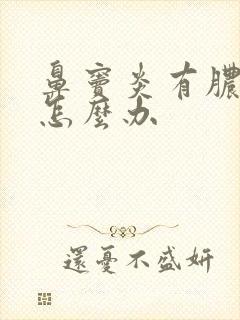 鼻竇炎有膿
怎麼办
還憂不盛妍